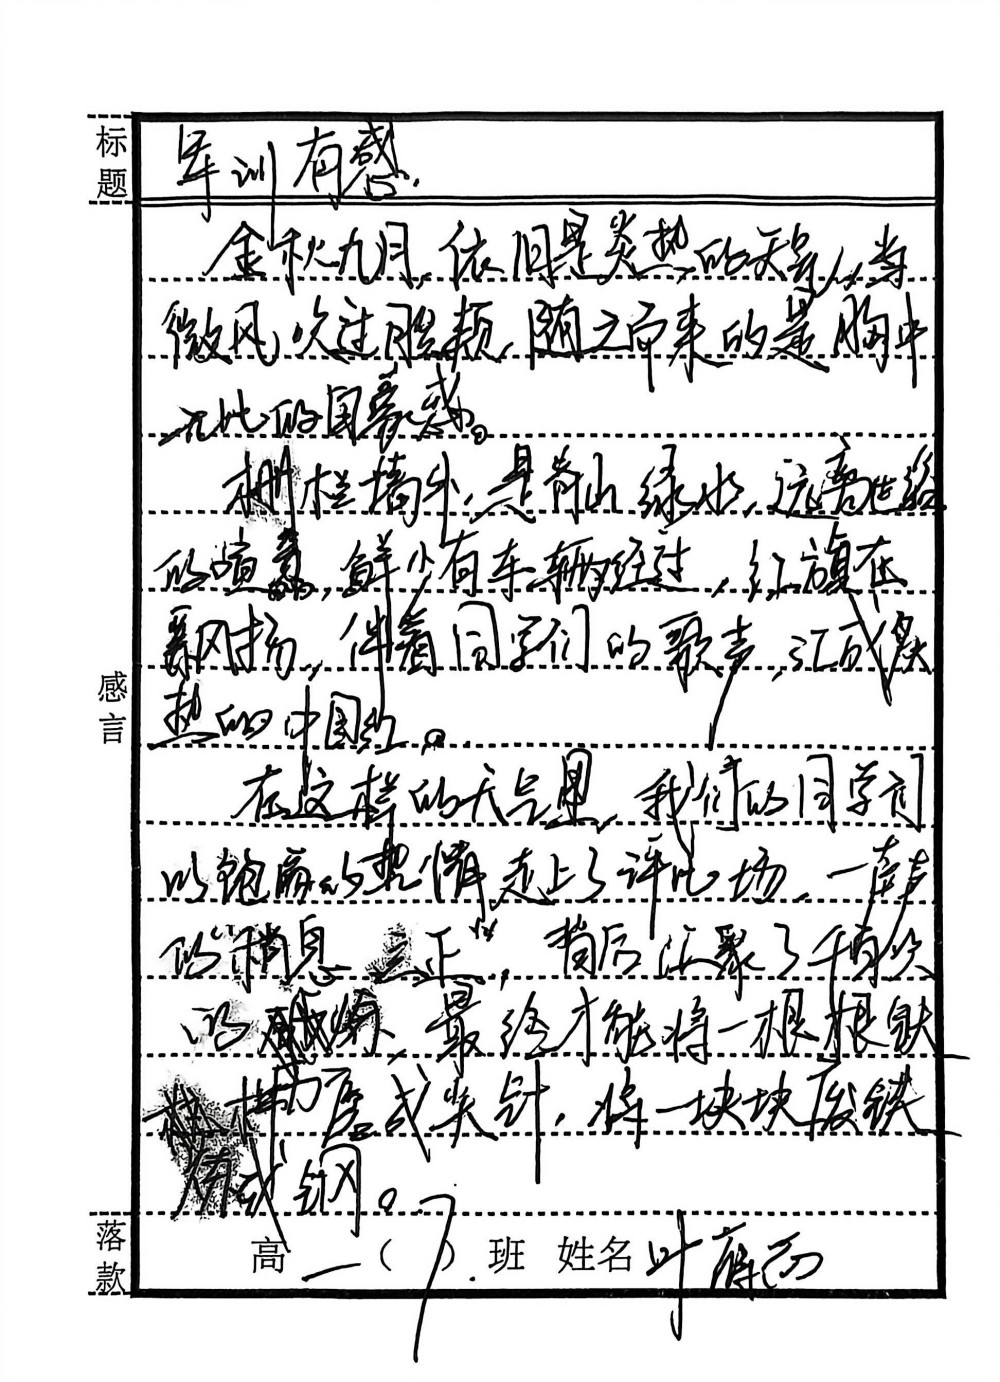 标题
军训有感.
金秋九月,依旧是炎热的天气,当
微风吹过脸颊,随之而来的是胸中
无比的国豪感。
栅栏墙外,是青山绿水,远离世
的喧嚣,鲜少有车辆经过,红旗在
暴风扬,伴着同学们的歌声,汇成
感言
热的中国红。
在这样的天气里,我们的同学们
以饱满的热情走上了评比场,一声声
的"稍息""立正",背后汇聚了千百次
的 练,最终才能将一根根
磨成尖针,将一块块废铁
炼成钢。
落款
高一(7)班 姓名 叶